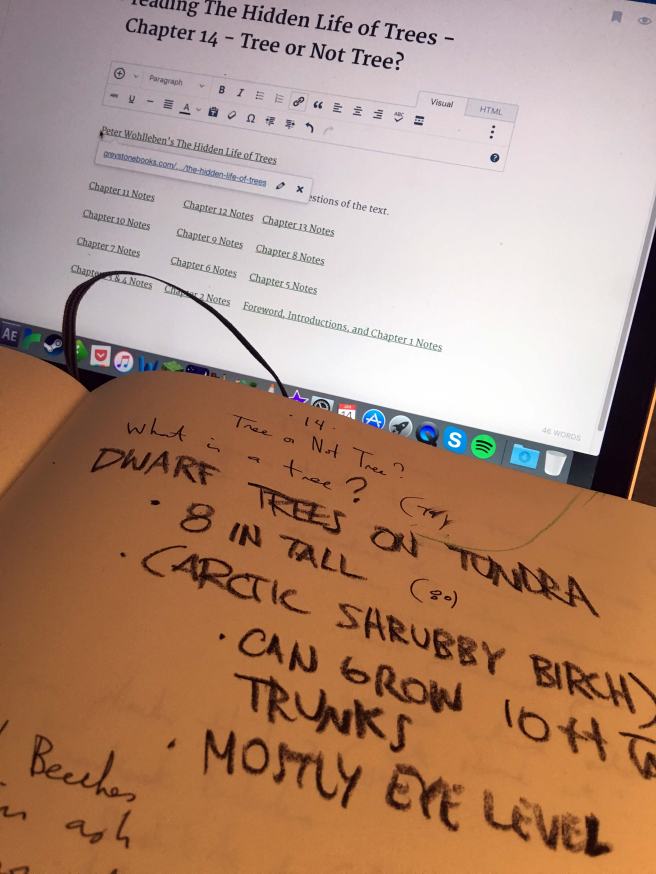 Reading The Hidden Life of Trees –
Chapter 14 – Tree or Not Tree?
Visual HTML
Paragraph B I
ABC
U A Ω
Peter Wohlleben's The Hidden Life of Trees
greystonebooks.com/.../the-hidden-life-of-trees
estions of the text.
Chapter 11 Notes Chapter 12 Notes Chapter 13 Notes
Chapter 10 Notes Chapter 9 Notes Chapter 8 Notes
Chapter 7 Notes Chapter 6 Notes Chapter 5 Notes
& 4 Notes 2 Notes Foreword, Introductions, and Chapter 1 Notes
46 WORDS
AE
14
· 14 ·
Tree or Not Tree?
What is a tree?
DWARF TREES ON TUNDRA
· 8 IN TALL (80)
· (ARCTIC SHRUBBY BIRCH)
· CAN GROW 10ft
TRUNKS
· MOSTLY EYE LEVEL
Beeches
ash